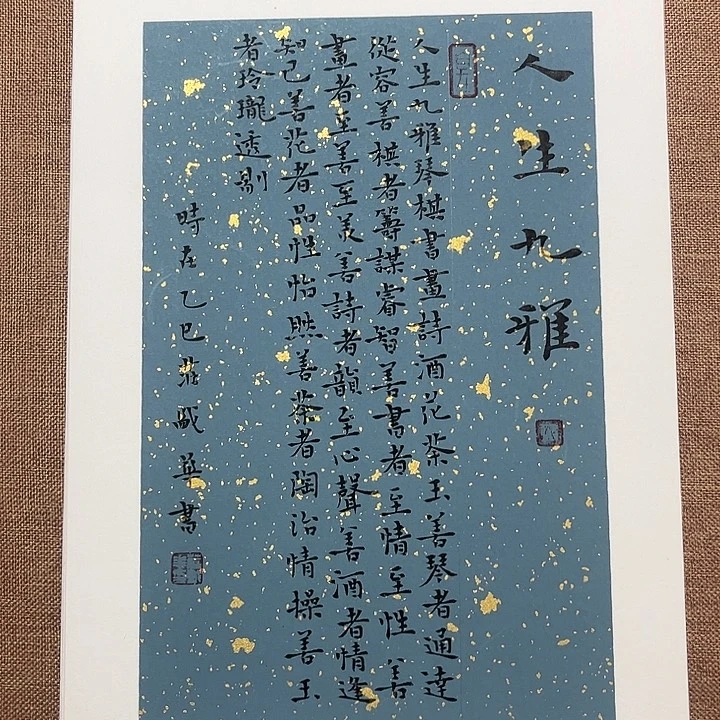 人生九雅
人生九雅琴棋書畫詩酒花茶玉善琴者通達
從容善棋者籌謀睿智善書者至情至性善
畫者至善至美善詩者韻至心聲善酒者情逢
知己善花者品性怡然善茶者陶冶情操善玉
者玲瓏透剔
時在乙巳莊成英書